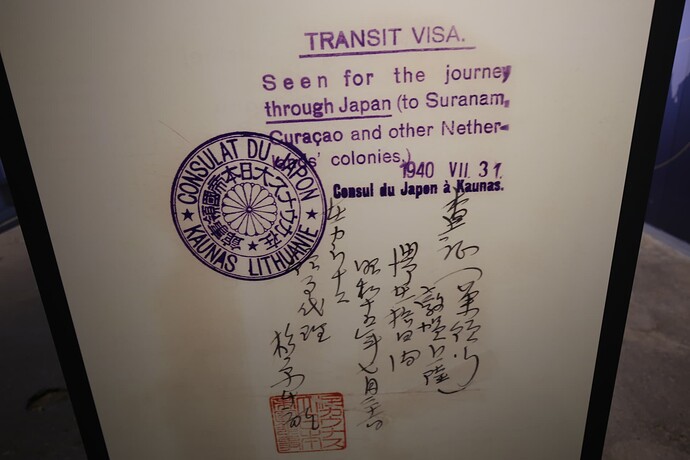 TRANSIT VISA.
Seen for the journey
through Japan (to Suranam,
Curaçao and other Nether-
lands' colonies.)
1940 VII 31
Consul du Japon à Kaunas.
★ CONSULAT DU JAPON ★
KAUNAS LITHUANIE
在カウナス大日本帝國領事館
査証
敦賀上陸
昭和十五年七月
在カウナス
領事代理 杉原千畝